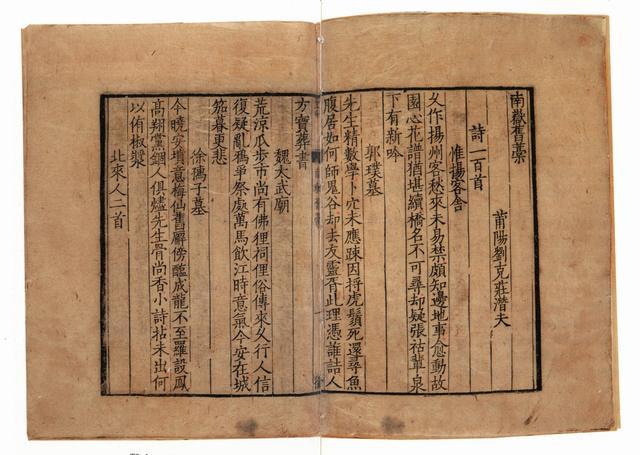 南嶽舊藁
莆陽劉克莊潛夫
詩一百首
惟揚客舍
乆作揚州客愁來未易禁頗知邊地事愈動故
園心花譜猶堪續橋名不可尋却疑張祜輩泉
下有新吟
郭璞墓
先生精數學卜穴未應踈因捋虎鬚死還尋魚
腹居如何師鬼谷却去友靈胥此理憑誰詰人
方寶葬書
魏太武廟
荒涼瓜步市尚有佛狸祠俚俗傳來乆行人信
復疑亂鴉爭祭處萬馬飲江時意氣今安在城
笳暮更悲
徐孺子墓
今曉安墳意梅仙舊廨傍醢成龍不至羅設鳳
高翔黨錮人俱燼先生骨尚香小詩拈未出何
以侑椒漿
北來人二首